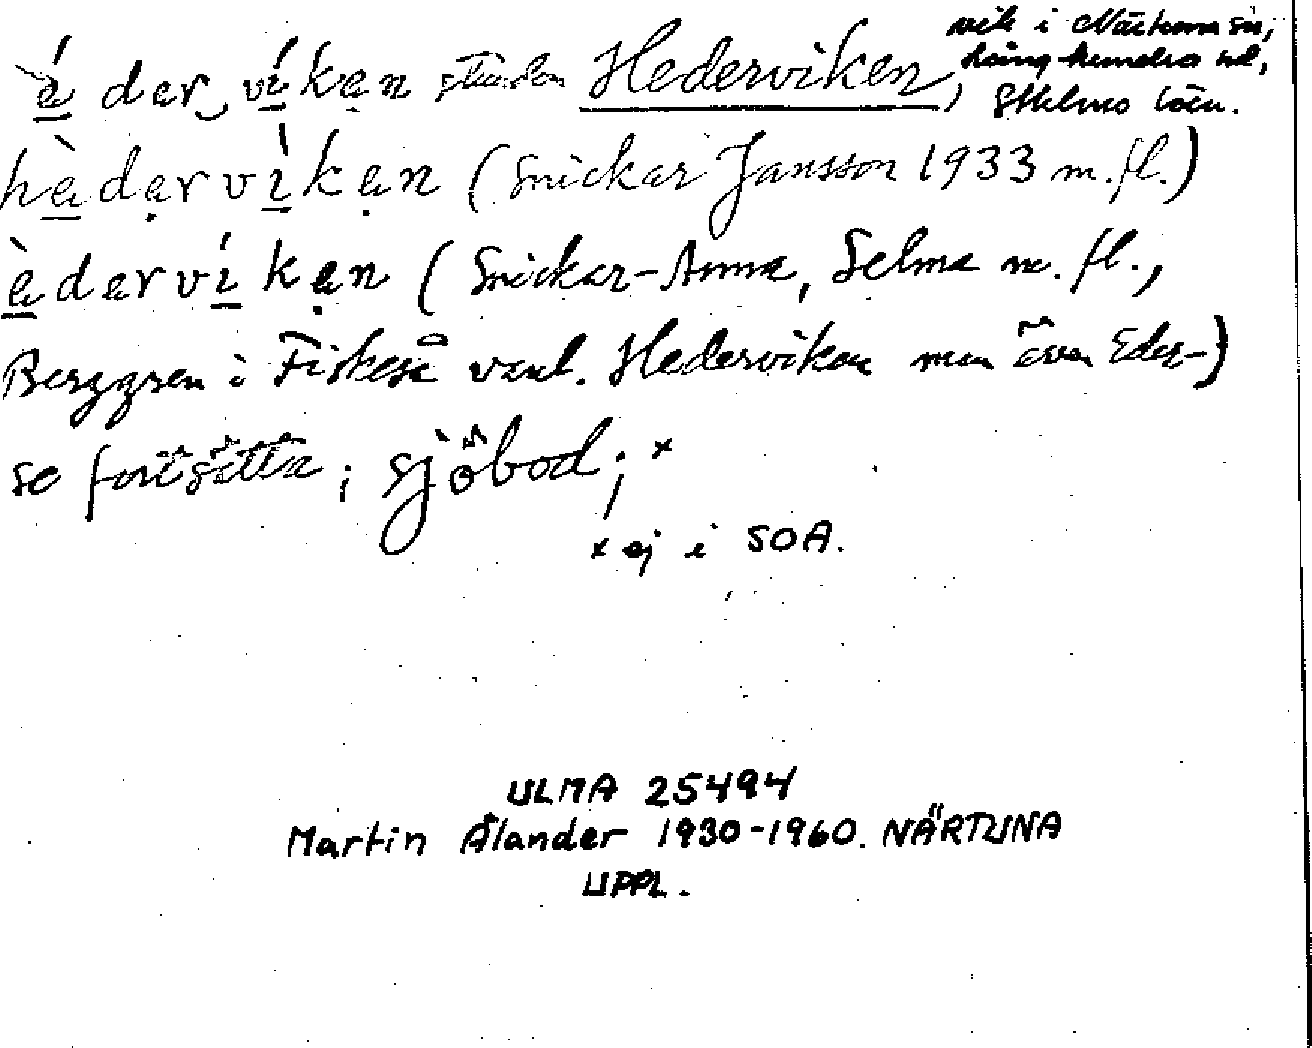 édervíken stundom Hederviken, vik i Närtuna sn, Långhundra hd, Sthlms län.
hèdarvìken (Snickar Jansson 1933 m. fl.)
èdervíken (Snickar-Anna, Selma m. fl.,
Berggren i Fiskeså vanl. Hederviken men även Eder-)
se fortsätta; sjöbod; x
x ej i SOA.
ULMA 25494
Martin Ålander 1930-1960. NÄRTUNA
UPPL.